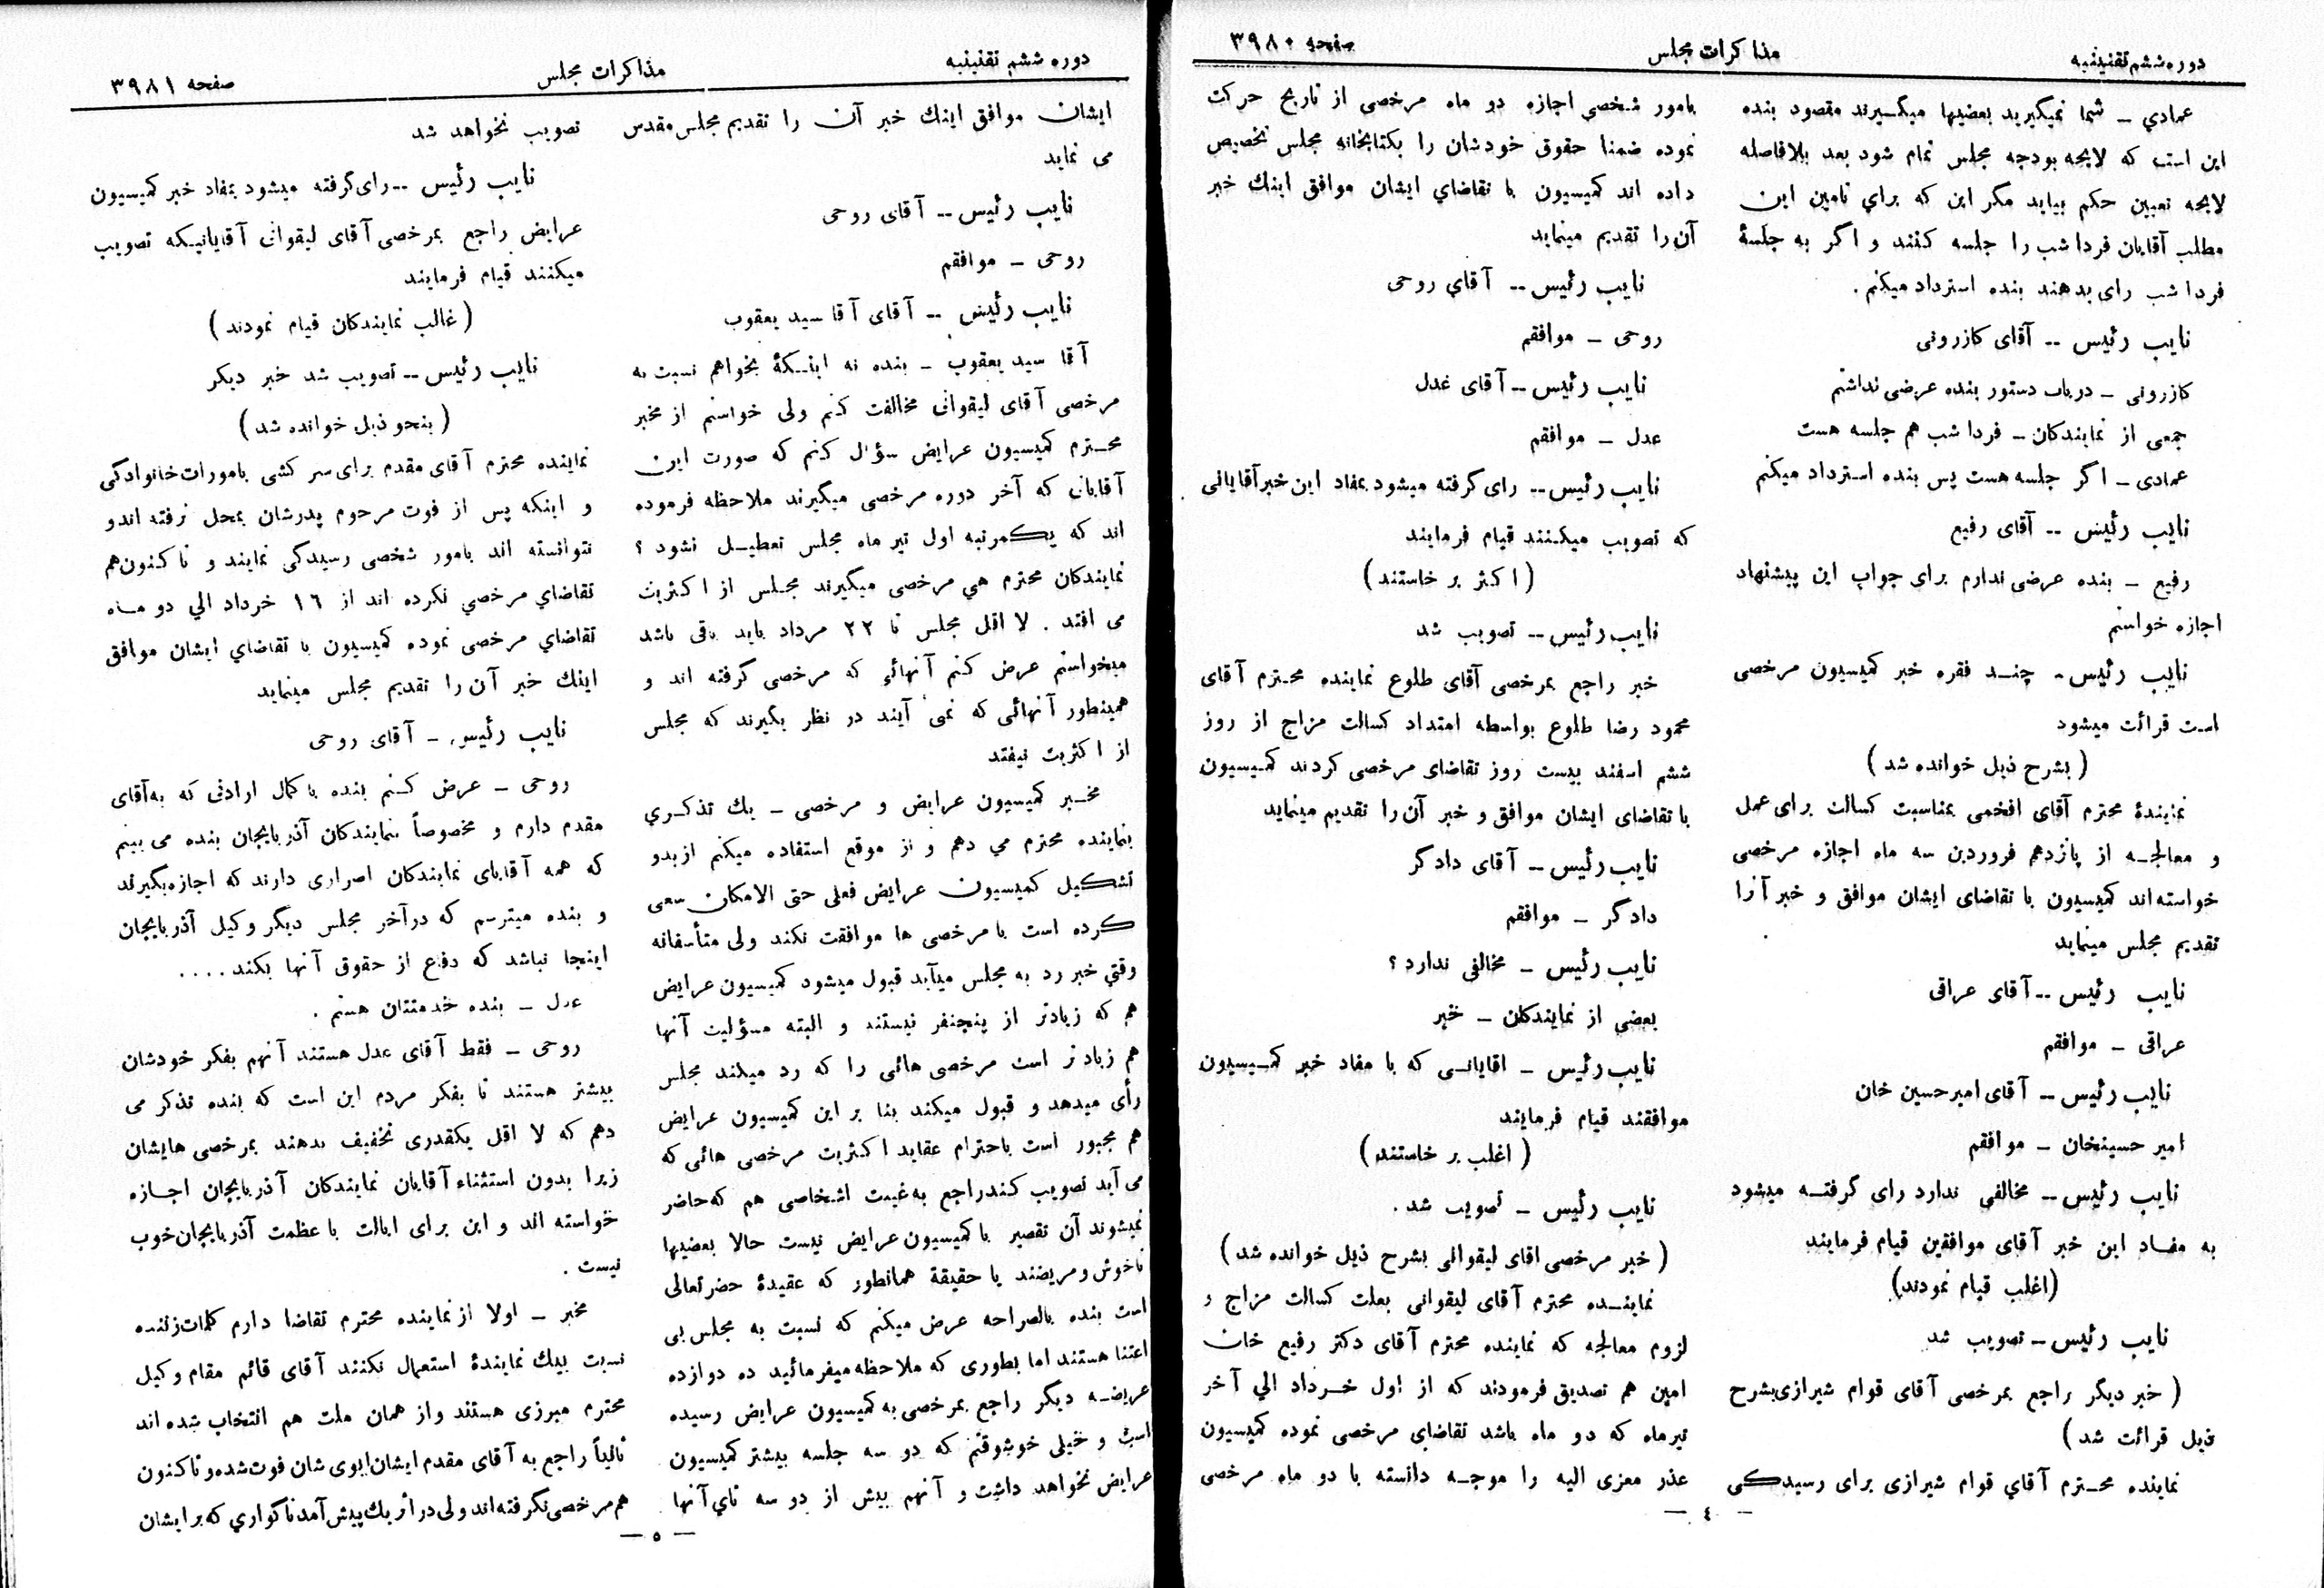 دوره ششم تقنینیه
مذاکرات مجلس
صفحه ۳۹۸۰
عمادي ــ شما نمیگیرید بعضیها میگیرند مقصود بنده
این است که لایحه بودجه مجلس تمام شود بعد بلافاصله
لایحه تعیین حکم بیاید مگر این که براي تامین این
مطلب آقایان فردا شب را جلسه کنند و اگر به جلسهٔ
فردا شب رای بدهند بنده استرداد میکنم .
نایب رئیس -- آقای کازرونی
کازرونی ــ در باب دستور بنده عرضی نداشتم
جمعی از نمایندگان ــ فردا شب هم جلسه هست
عمادی ــ اگر جلسه هست پس بنده استرداد میکنم
نایب رئیس -- آقای رفیع
رفیع ــ بنده عرضی ندارم برای جواب این پیشنهاد
اجازه خواستم
نایب رئیس - چند فقره خبر کمیسیون مرخصی
است قرائت میشود
( بشرح ذیل خوانده شد )
نمایندهٔ محترم آقای افخمی بمناسبت کسالت برای عمل
و معالجه از پانزدهم فروردین سه ماه اجازه مرخصی
خواسته اند کمیسیون با تقاضای ایشان موافق و خبر آنرا
تقدیم مجلس مینماید
نایب رئیس -- آقای عراقی
عراقی ــ موافقم
نایب رئیس -- آقای امیرحسین خان
امیر حسینخان ــ موافقم
نایب رئیس -- مخالفی ندارد رای گرفته میشود
به مفاد این خبر آقای موافقین قیام فرمایند
(اغلب قیام نمودند)
نایب رئیس ــ تصویب شد
( خبر دیگر راجع بمرخصی آقای قوام شیرازی بشرح
ذیل قرائت شد )
نماینده محترم آقاي قوام شیرازی برای رسیدگی
بامور شخصی اجازه دو ماه مرخصی از تاریخ حرکت
نموده ضمنا حقوق خودشان را بکتابخانه مجلس تخصیص
داده اند کمیسیون با تقاضاي ایشان موافق اینك خبر
آن را تقدیم مینماید
نایب رئیس -- آقاي روحی
روحی ــ موافقم
نایب رئیس -- آقای عدل
عدل ــ موافقم
نایب رئیس -- رای گرفته میشود بمفاد این خبر آقایانی
که تصویب میکنند قیام فرمایند
( اکثر بر خاستند )
نایب رئیس -- تصویب شد
خبر راجع بمرخصی آقای طلوع نماینده محترم آقای
محمود رضا طلوع بواسطه امتداد کسالت مزاج از روز
ششم اسفند بیست روز تقاضای مرخصی کردند کمیسیون
با تقاضای ایشان موافق و خبر آن را تقدیم مینماید
نایب رئیس ــ آقای دادگر
دادگر ــ موافقم
نایب رئیس ــ مخالفی ندارد ؟
بعضي از نمایندگان ــ خیر
نایب رئیس ــ اقایانی که با مفاد خبر کمیسیون
موافقند قیام فرمایند
( اغلب بر خاستند )
نایب رئیس ــ تصویب شد .
( خبر مرخصی اقای لیقوانی بشرح ذیل خوانده شد )
نماینده محترم آقای لیقوانی بعلت کسالت مزاج و
لزوم معالجه که نماینده محترم آقای دکتر رفیع خان
امین هم تصدیق فرمودند که از اول خرداد الي آخر
تیرماه که دو ماه باشد تقاضای مرخصی نموده کمیسیون
عذر معزی الیه را موجه دانسته با دو ماه مرخصی
— ٤ —
دوره ششم تقنینیه
مذاکرات مجلس
صفحه ۳۹۸۱
ایشان موافق اینك خبر آن را تقدیم مجلس مقدس
می نماید
نایب رئیس -- آقای روحی
روحی ــ موافقم
نایب رئیس -- آقای آقا سید یعقوب
آقا سید یعقوب ــ بنده نه اینکهٔ بخواهم نسبت به
مرخصی آقای لیقوانی مخالفت کنم ولی خواستم از مخبر
محترم کمیسیون عرایض سؤال کنم که صورت این
آقایان که آخر دوره مرخصی میگیرند ملاحظه فرموده
اند که یکمرتبه اول تیر ماه مجلس تعطیل نشود ؟
نمایندگان محترم هي مرخصی میگیرند مجلس از اکثریت
می افتد . لا اقل مجلس تا ۲۲ مرداد باید باقی باشد
میخواستم عرض کنم آنهائي که مرخصی گرفته اند و
همینطور آنهائی که نمی آیند در نظر بگیرند که مجلس
از اکثریت نیفتد
مخبر کمیسیون عرایض و مرخصی ــ یك تذکري
بنماینده محترم می دهم و از موقع استفاده میکنم از بدو
تشکیل کمیسیون عرایض فعلی حتی الامکان سعی
کرده است با مرخصی ها موافقت نکند ولی متأسفانه
وقتي خبر رد به مجلس میآید قبول میشود کمیسیون عرایض
هم که زیادتر از پنجنفر نیستند و البته مسؤلیت آنها
هم زیاد تر است مرخصی هائی را که رد میکند مجلس
رأی میدهد و قبول میکند بنا بر این کمیسیون عرایض
هم مجبور است باحترام عقاید اکثریت مرخصی هائی که
می آید تصویب کند راجع به غیبت اشخاصی هم که حاضر
نمیشوند آن تقصیر با کمیسیون عرایض نیست حالا بعضیها
ناخوش و مریضند یا حقیقة همانطور که عقیدهٔ حضرتعالی
است بنده بالصراحه عرض میکنم که نسبت به مجلس بی
اعتنا هستند اما بطوری که ملاحظه میفرمائید ده دوازده
عریضه دیگر راجع بمرخصی به کمیسیون عرایض رسیده
است و خیلی خوشوقتم که دو سه جلسه بیشتر کمیسیون
عرایض نخواهد داشت و آنهم بیش از دو سه تاي آنها
تصویب نخواهد شد
نایب رئیس -- رای گرفته میشود بمفاد خبر کمیسیون
عرایض راجع بمرخصی آقای لیقوانی آقایانیکه تصویب
میکنند قیام فرمایند
( غالب نمایندگان قیام نمودند )
نایب رئیس -- تصویب شد خبر دیگر
( بنحو ذیل خوانده شد )
نماینده محترم آقای مقدم برای سر کشی بامورات خانوادگی
و اینکه پس از فوت مرحوم پدرشان بمحل نرفته اند و
نتوانسته اند بامور شخصی رسیدگی نمایند و تا کنون هم
تقاضاي مرخصي نکرده اند از ۱٦ خرداد الي دو ماه
تقاضاي مرخصی نموده کمیسیون با تقاضاي ایشان موافق
اینك خبر آن را تقدیم مجلس مینماید
نایب رئیس ــ آقای روحی
روحی ــ عرض کنم بنده با کمال ارادتی که به آقای
مقدم دارم و مخصوصاً بنمایندگان آذربایجان بنده می بینم
که همه آقایان نمایندگان اصراری دارند که اجازه بگیرند
و بنده میترسم که در آخر مجلس دیگر وکیل آذربایجان
اینجا نباشد که دفاع از حقوق آنها بکند ....
عدل ــ بنده خدمتتان هستم .
روحی ــ فقط آقای عدل هستند آنهم بفکر خودشان
بیشتر هستند تا بفکر مردم این است که بنده تذکر می
دهم که لا اقل یکقدری تخفیف بدهند بمرخصی هایشان
زیرا بدون استثناء آقایان نمایندگان آذربایجان اجازه
خواسته اند و این برای ایالت با عظمت آذربایجان خوب
نیست .
مخبر ــ اولا از نماینده محترم تقاضا دارم کلمات زننده
نسبت بیك نمایندهٔ استعمال نکنند آقای قائم مقام وکیل
محترم مبرزی هستند و از همان ملت هم انتخاب شده اند
ثانیاً راجع به آقای مقدم ایشان ابوی شان فوت شده و تا کنون
هم مرخصی نگرفته اند ولی در اثر یك پیش آمد ناگواري که بر ایشان
— ٥ —